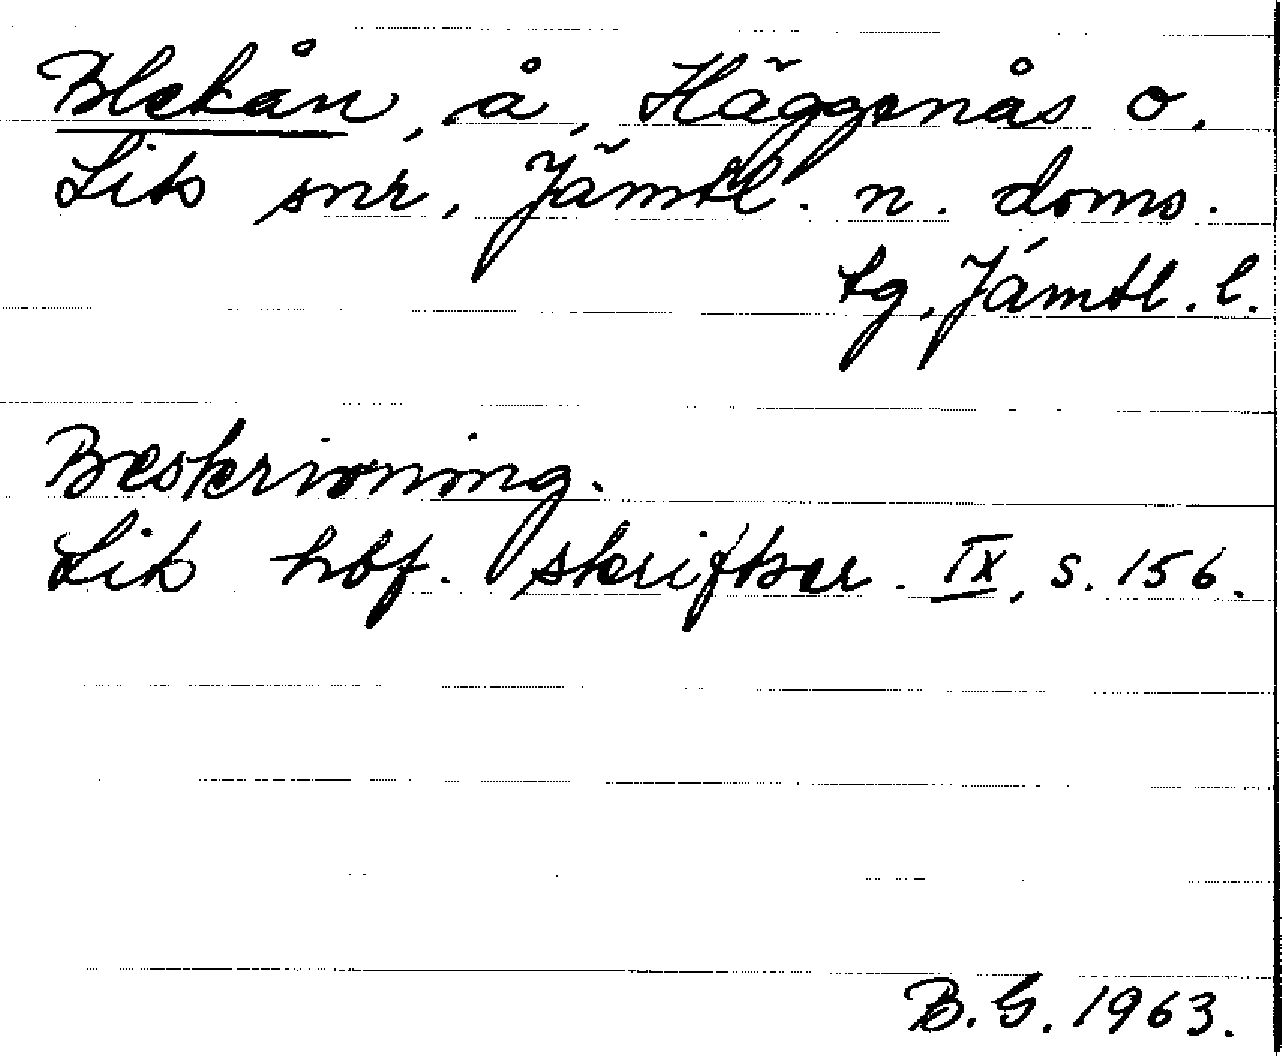 Blekån, å, Häggenås o.
Lits snr, Jämtl. n. doms.
tg, Jämtl. l.
Beskrivning.
Lits hbf. skrifter. IX, s. 156.
B.G. 1963.